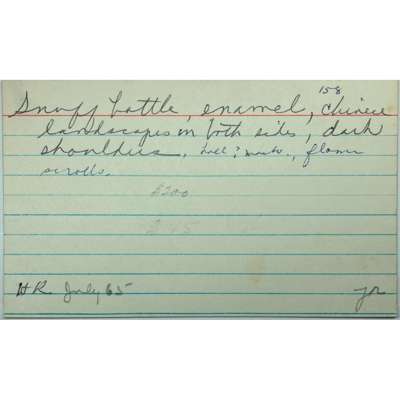 158
Snuff bottle, enamel, Chinese
landscapes on both sides, dark
shoulders, flower
scrolls.
$200
$45
HR July 65